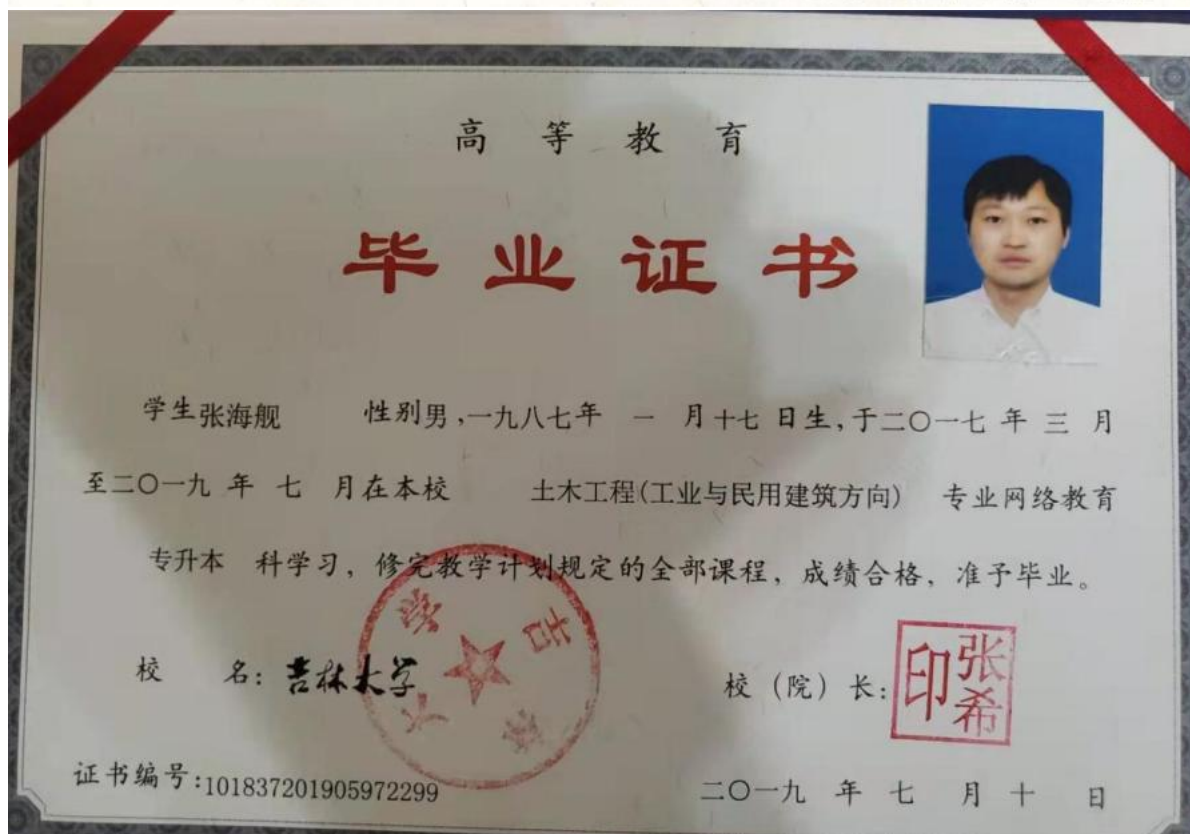 高等教育
毕业证书
学生张海舰 性别男,一九八七年 一 月十七 日生,于二〇一七 年 三 月
至二〇一九 年 七 月在本校 土木工程(工业与民用建筑方向) 专业网络教育
专升本 科学习，修完教学计划规定的全部课程，成绩合格，准予毕业。
校 名：吉林大学
吉林大学
校（院）长：
张希印
证书编号:101837201905972299
二〇一九 年 七 月 十 日